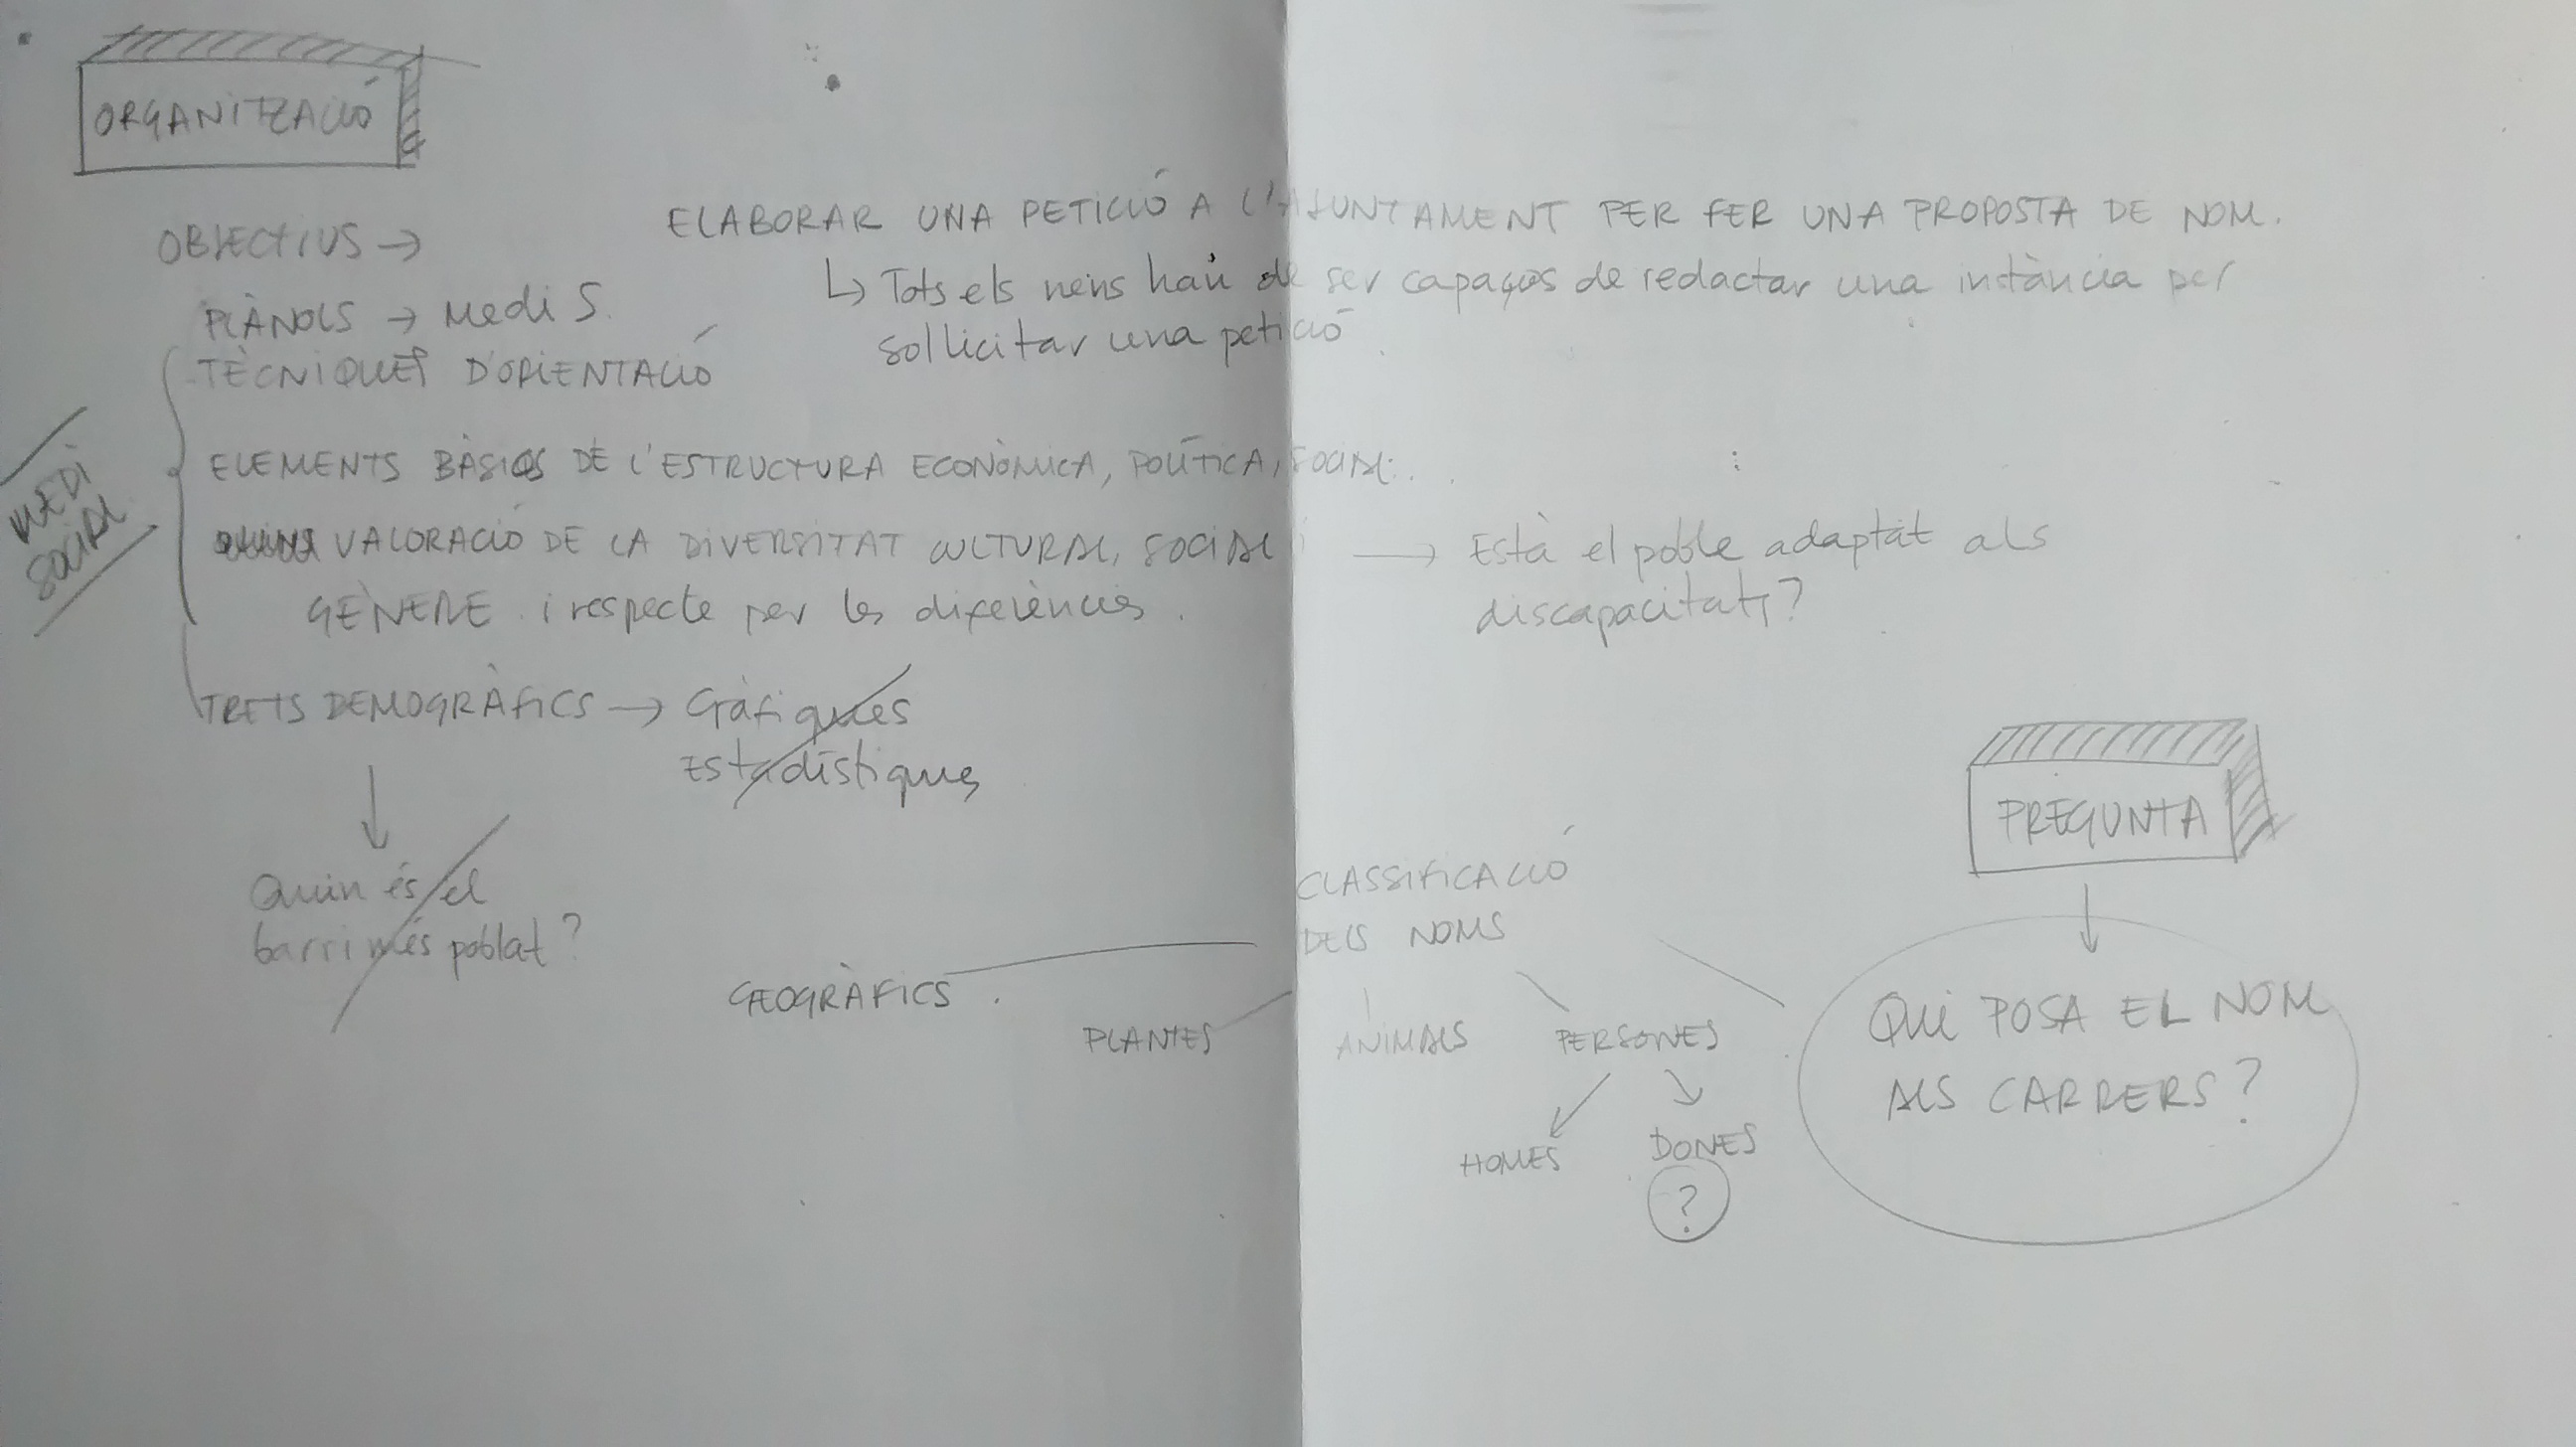 ORGANITZACIÓ
OBJECTIUS →
ELABORAR UNA PETICIÓ A L'AJUNTAMENT PER FER UNA PROPOSTA DE NOM.
↳ Tots els nens han de ser capaços de redactar una instància per
sol·licitar una petició
PLÀNOLS → Medi S.
TÈCNIQUES D'ORIENTACIÓ
MEDI
SOCIAL
ELEMENTS BÀSICS DE L'ESTRUCTURA ECONÒMICA, POLÍTICA, SOCIAL...
VALORACIÓ DE LA DIVERSITAT CULTURAL, SOCIAL i → Està el poble adaptat als
discapacitats?
GÈNERE i respecte per les diferències.
TRETS DEMOGRÀFICS → Gràfiques
Estadístiques
Quin és el
barri més poblat?
PREGUNTA
QUI POSA EL NOM
ALS CARRERS?
CLASSIFICACIÓ
DELS NOMS
GEOGRÀFICS
PLANTES
ANIMALS
PERSONES
HOMES
DONES
?